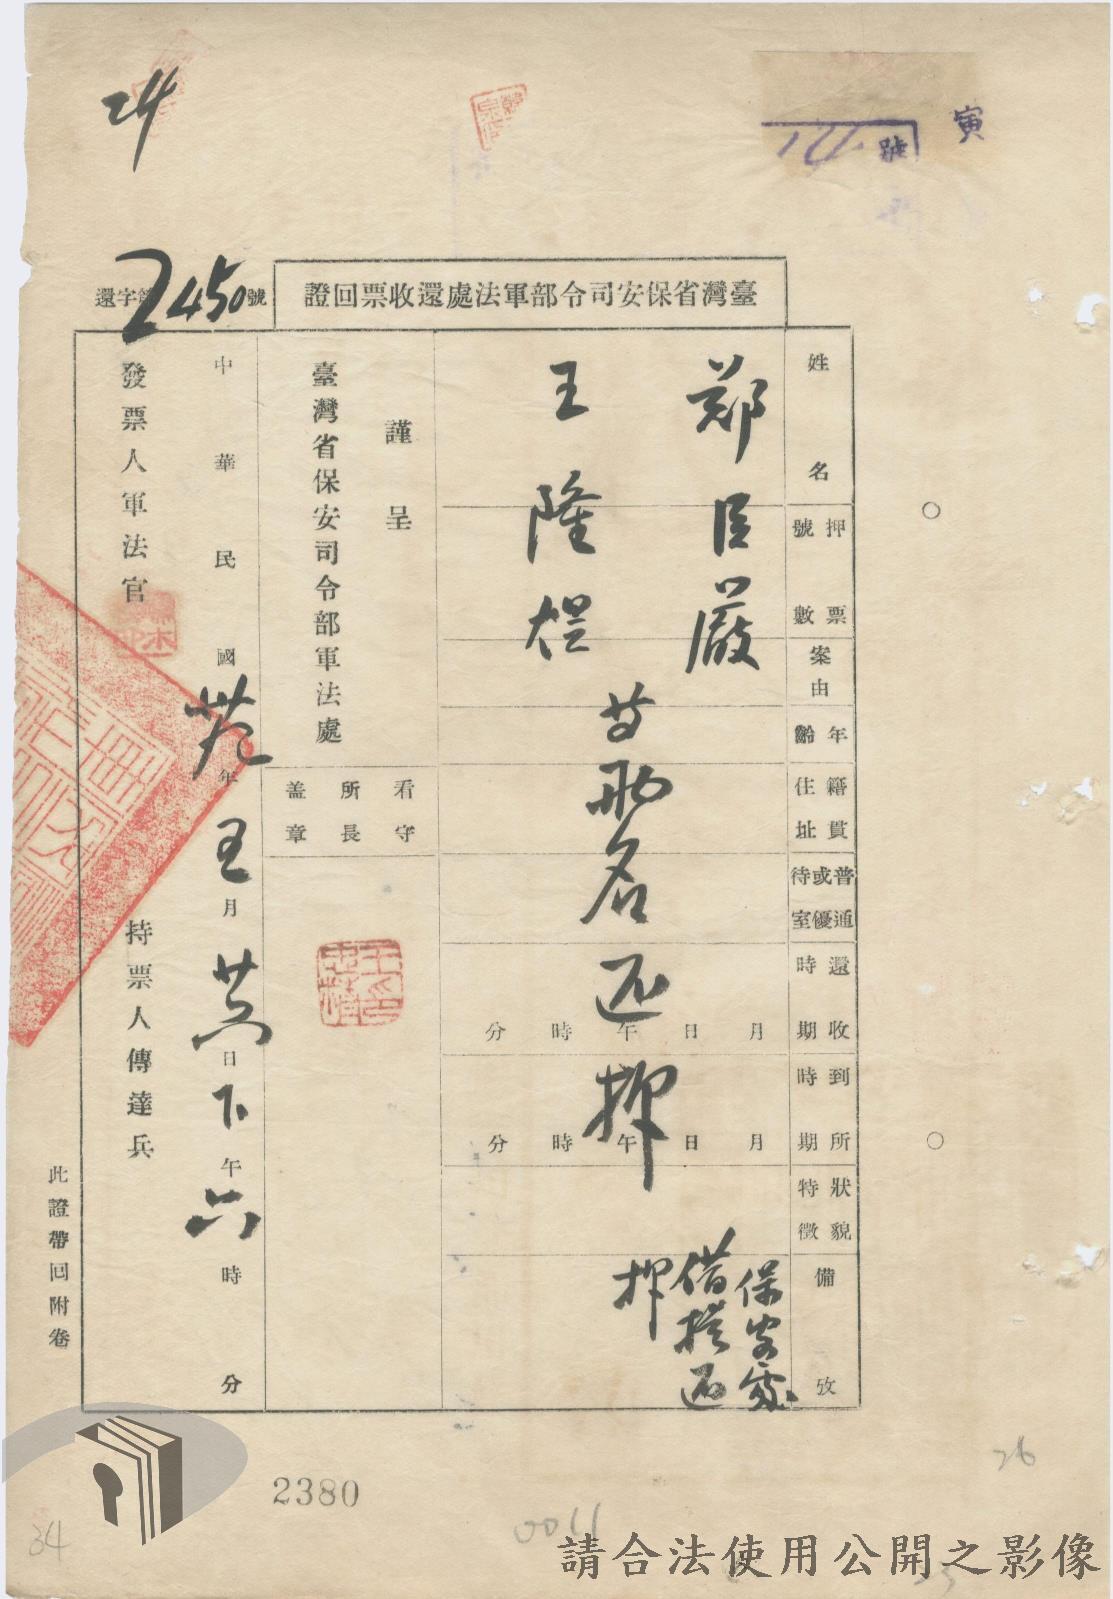 24
寅
號
臺灣省保安司令部軍法處還收票回證
還字第2450號
姓名
押票號數
案由
年齡
籍貫住址
普通或優待室
還收時期
到所時期
狀貌特徵
備攷
鄭臣嚴
王隆煜
等兩名還押
月日午時分
月日午時分
保安處
借提還
押
謹呈
臺灣省保安司令部軍法處
看守所長蓋章
中華民國卅九年五月廿六日下午六時分
發票人軍法官
持票人傳達兵
此證帶回附卷
2380
0011
26
34
請合法使用公開之影像